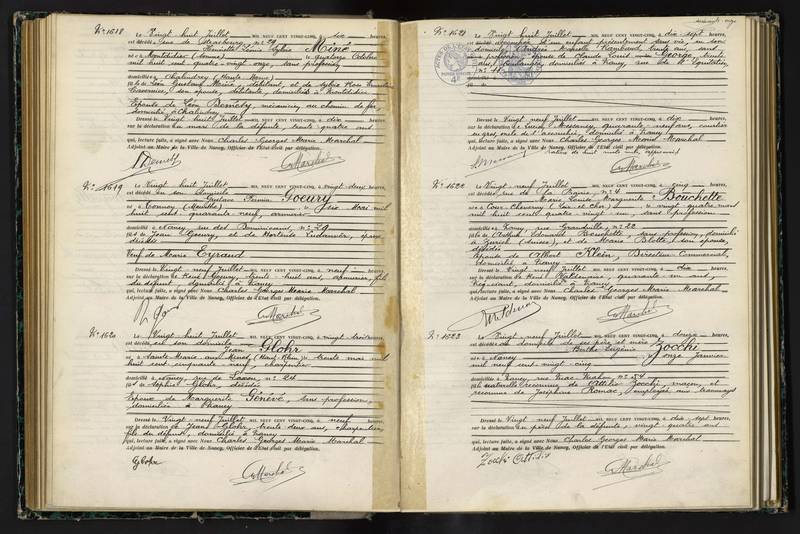 N° 1618
Le Vingt huit Juillet MIL NEUF CENT VINGT-CINQ, à dix heures,
est décédée rue de Strasbourg n° 29
Henriette Louise Sylvie Miné
née à Montdidier (Somme), le quatorze Octobre
mil huit cent quatre-vingt onze, sans profession
domiciliée à Chalindrey (Haute Marne)
fille de Léon Gustave Miné, débitant, et de Sylvie Rose
son épouse, débitante, domiciliés à Montdidier
Epouse de Léon mécanicien au chemin de fer,
domicilié à Chalindrey
Dressé le Vingt huit Juillet MIL NEUF CENT VINGT-CINQ, à dix heures,
sur la déclaration du mari de la défunte, trente-quatre ans
qui, lecture faite, a signé avec Nous Charles Georges Marie Maréchal
Adjoint au Maire de la Ville de Nancy, Officier de l'Etat civil par délégation.
N° 1619
Le Vingt huit Juillet MIL NEUF CENT VINGT-CINQ, à vingt deux heures,
est décédé en son domicile
Gustave Firmin Goeury
né à Tonnoy (Meurthe), le six Mai mil
huit cent quarante-neuf, armurier
domicilié à Nancy rue des Dominicains, n° 29
fils de Jean Goeury, et de Hortense époux
décédés
Veuf de Marie Eyraud
Dressé le Vingt neuf Juillet MIL NEUF CENT VINGT-CINQ, à neuf heures,
sur la déclaration de René Goeury, trente huit ans, armurier, fils
du défunt, domicilié à Nancy
qui, lecture faite, a signé avec Nous Charles Georges Marie Maréchal
Adjoint au Maire de la Ville de Nancy, Officier de l'Etat civil par délégation.
N° 1620
Le Vingt huit Juillet MIL NEUF CENT VINGT-CINQ, à vingt trois heures,
est décédé en son domicile
Jean Glohr
né à Sainte Marie aux Mines (Haut Rhin), le trente mai mil
huit cent cinquante neuf, charpentier
domicilié à Nancy, rue de Laxou, n° 24
fils de Sophie Glohr, décédée
Epoux de Marguerite Génévé, sans profession,
domiciliée à Nancy
Dressé le Vingt neuf Juillet MIL NEUF CENT VINGT-CINQ, à neuf heures,
sur la déclaration de Jean Glohr, trente deux ans, charpentier,
fils du défunt, domicilié à Nancy
qui, lecture faite, a signé avec Nous Charles Georges Marie Maréchal
Adjoint au Maire de la Ville de Nancy, Officier de l'Etat civil par délégation.
Glohr
N° 1621
Le Vingt huit Juillet MIL NEUF CENT VINGT-CINQ, à dix sept heures,
est accouchée d'un enfant présentement sans vie, en son
domicile Andrée trente ans, sans
profession, épouse de Claude Louis George, trente
ans, domiciliés à Nancy, rue de l'Equitation,
n° 41
Dressé le Vingt neuf Juillet MIL NEUF CENT VINGT-CINQ, à dix heures,
sur la déclaration de neuf ans,
domicilié à Nancy
qui, lecture faite, a signé avec Nous Charles Georges Marie Maréchal
Adjoint au Maire de la Ville de Nancy, Officier de l'Etat civil par délégation.
N° 1622
Le Vingt neuf Juillet MIL NEUF CENT VINGT-CINQ, à cinq heures,
est décédée rue de la Prairie, n° 4
Marie Louise Marguerite Bouchette
née à Cour Cheverny (Loir et Cher), le vingt quatre mars
mil huit cent quatre vingt un, sans profession
domiciliée à Nancy, rue Grandville, n° 22
fille de Arthur Edouard Bouchette, sans profession, domicilié
à Zurich (Suisse), et de Marie Blotte, son épouse,
décédée
Epouse de Albert Klein, Directeur Commercial,
domicilié à Nancy
Dressé le Vingt neuf Juillet MIL NEUF CENT VINGT-CINQ, à dix heures,
sur la déclaration de René quarante un ans,
négociant, domicilié à Nancy
qui, lecture faite, a signé avec Nous Charles Georges Marie Maréchal
Adjoint au Maire de la Ville de Nancy, Officier de l'Etat civil par délégation.
N° 1623
Le Vingt neuf Juillet MIL NEUF CENT VINGT-CINQ, à douze heures,
est décédée au domicile de ses père et mère
Berthe Eugénie Zocchi
née à Nancy, le onze Janvier
mil neuf cent vingt-cinq
domiciliée à Nancy, rue Mac Mahon, n° 54
fille naturelle reconnue de Attilio Zocchi, maçon, et
reconnue de Joséphine employée aux tramways
Dressé le Vingt neuf Juillet MIL NEUF CENT VINGT-CINQ, à dix sept heures,
sur la déclaration du père de la défunte, vingt quatre ans
qui, lecture faite, a signé avec Nous Charles Georges Marie Maréchal
Adjoint au Maire de la Ville de Nancy, Officier de l'Etat civil par délégation.
Zocchi Attilio